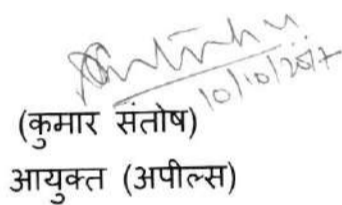 10/10/2017
(कुमार संतोष)
आयुक्त (अपील्स)